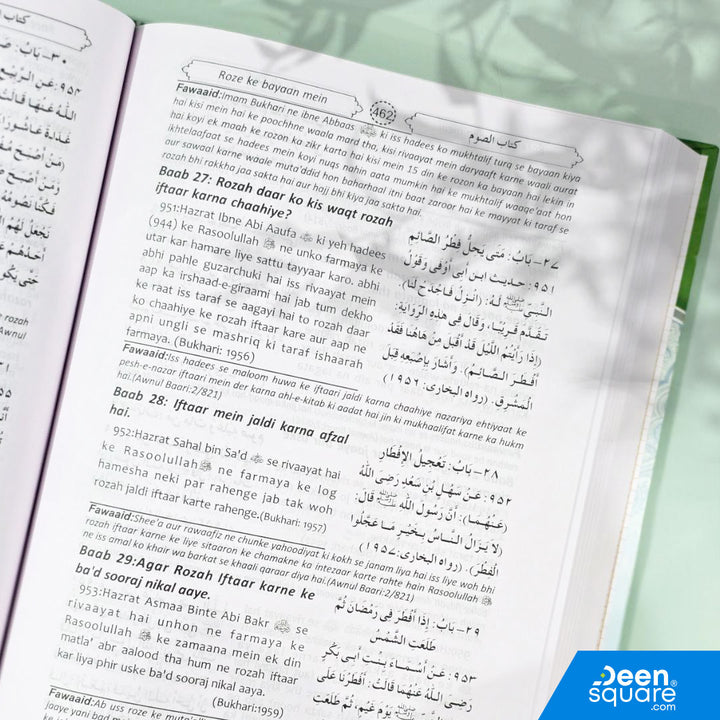 كتاب
٣٠- بَابُ: صَ
٩٥٤: عَنِ الرُّبَيِّعِ
اللَّهُ عَنْهَا قَالَتْ
غَدَاةَ عَاشُورَاءَ
Roze ke bayaan mein
462
كتاب الصوم
Fawaaid:Imam Bukhari ne ibne Abbaas ﷺ ki iss hadees ko mukhtalif turq se bayaan kiya
hai kisi mein hai ke poochhne waala mard tha, kisi rivaayat mein daryaaft karne waali aurat
hai koyi ek maah ke rozon ka zikr karta hai kisi mein 15 din ke rozon ka bayaan hai lekin in
ikhtelaafaat se hadees mein koyi nuqs nahin aata mumkin hai ke mukhtalif waaqe'aat hon
aur sawaal karne waale muta'ddid hon baharhaal itni baat zaroor hai ke mayyat ki taraf se
rozah bhi rakkha jaa sakta hai aur hajj bhi kiya jaa sakta hai.
Baab 27: Rozah daar ko kis waqt rozah
iftaar karna chaahiye?
951:Hazrat Ibne Abi Aaufa ki yeh hadees
(944) ke Rasoolullah ﷺ ne unko farmaya ke
utar kar hamare liye sattu tayyaar karo. abhi
abhi pahle guzarchuki hai iss rivaayat mein
aap ka irshaad-e-giraami hai jab tum dekho
ke raat iss taraf se aagayi hai to rozah daar
ko chaahiye ke rozah iftaar kare aur aap ne
apni ungli se mashriq ki taraf ishaarah
farmaya. (Bukhari: 1956)
٢٧- بَابُ: مَتَى يَحِلُّ فِطْرُ الصَّائِمِ
٩٥١: حديث ابن أبي أَوْفَى وَقَوْلُ
النَّبِيِّ ﷺ لَهُ: (اِنْزِلْ فَاجْدَحْ لَنَا).
تَقَدَّمَ قَرِيبًا، وَقَالَ فِي هٰذِهِ الرِّوَايَةِ:
(إِذَا رَأَيْتُمُ اللَّيْلَ قَدْ أَقْبَلَ مِنْ هَاهُنَا فَقَدْ
أَفْطَرَ الصَّائِمُ). وَأَشَارَ بِإِصْبَعِهِ قِبَلَ
الْمَشْرِقِ. (رواه البخاري: ١٩٥٦)
Fawaaid:Iss hadees se maloom huwa ke iftaari jaldi karna chaahiye nazariya ehtiyaat ke
pesh-e-nazar iftaari mein der karna ahl-e-kitab ki aadat hai jin ki mukhaalifat karne ka hukm
hai.(Awnul Baari:2/821)
Baab 28: Iftaar mein jaldi karna afzal
hai.
952:Hazrat Sahal bin Sa'd se rivaayat hai
ke Rasoolullah ﷺ ne farmaya ke log
hamesha neki par rahenge jab tak woh
rozah jaldi iftaar karte rahenge.(Bukhari: 1957)
٢٨- بَابُ: تَعْجِيلُ الإِفْطَارِ
٩٥٢: عَنْ سَهْلِ بْنِ سَعْدٍ رَضِيَ اللَّهُ
(عَنْهُمَا): أَنَّ رَسُولَ اللَّهِ ﷺ قَالَ:
(لَا يَزَالُ النَّاسُ بِخَيْرٍ مَا عَجَّلُوا
الْفِطْرَ). (رواه البخاري: ١٩٥٧)
Fawaaid:Shee'a aur rawaafiz ne chunke yahoodiyat ki kokh se janam liya hai iss liye woh bhi
rozah iftaar karne ke liye sitaaron ke chamakne ka intezaar karte rahte hain Rasoolullah ﷺ
ne iss amal ko khair wa barkat se khaali qaraar diya hai.(Awnul Baari:2/821)
Baab 29:Agar Rozah Iftaar karne ke
ba'd sooraj nikal aaye.
953:Hazrat Asmaa Binte Abi Bakr se
rivaayat hai unhon ne farmaya ke
Rasoolullah ﷺ ke zamaana mein ek din
matla' abr aalood tha hum ne rozah iftaar
kar liya phir uske ba'd sooraj nikal aaya.
(Bukhari:1959)
٢٩- بَابُ: إِذَا أَفْطَرَ فِي رَمَضَانَ ثُمَّ
طَلَعَتِ الشَّمْسُ
٩٥٣: عَنْ أَسْمَاءَ بِنْتِ أَبِي بَكْرٍ
رَضِيَ اللَّهُ عَنْهُمَا قَالَتْ: أَفْطَرْنَا عَلَى
يَوْمَ غَيْمٍ، ثُمَّ طَلَعَتِ
Fawaaid:Ab uss roze ke
Deen
square
.com